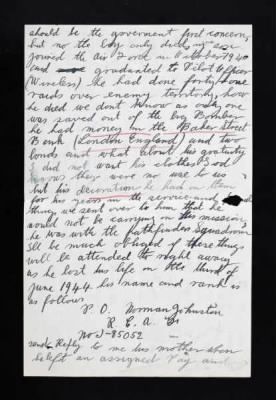 should be the goverment first concern,
but no the boy only died, in
joined the air Force in October 1940
and graduated to Pilot Officer
(Wireless) he had done forty-some
raids over enemy territory, how
he died we dont know as only one
was saved out of the big Bomber
he had money in the Baker Street
Bank (London England) and two
bonds and what about his gratuity
I did not want his clothes God
knows they were no use to us
but his decoration he had on them
for his years in the service and
things we sent over to him that he
would not be carrying on this mission,
he was with the pathfinders Squadron
I'll be much obliged if these things
will be attended to right away
as he lost his life on the third of
june 1944 his name and rank is
as follows
P.O. Norman Johnston
R.C.A.F.
No J-85052
send Reply to me his mother
he left an assigned Pay and